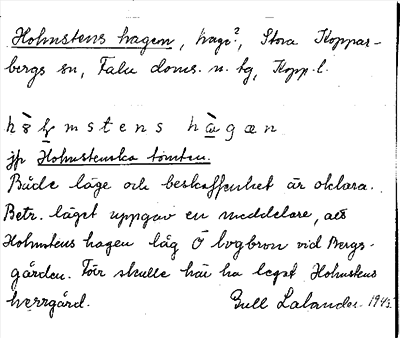 Holmstens hagen, hage?, Stora Koppar-
bergs sn, Falu doms. n. tg, Kopp. l.
hòlmstens hàgæn
jfr Holmstenska tomten.
Både läge och beskaffenhet är oklara.
Betr. läget uppgav en meddelare, att
Holmstens hagen låg Ö lvgbron vid Bergs-
gården. Förr skulle här ha legat Holmstens
herrgård. Gull Lalander 1943.